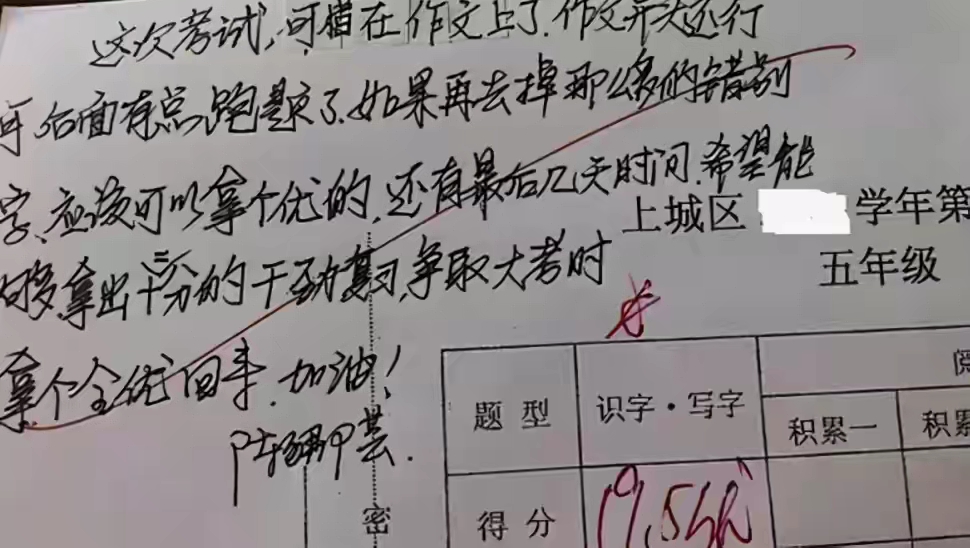 这次考试,可惜在作文上了.作文开头还行
可后面有点跑题了.如果再去掉那么多的错别
字、应该可以拿个优的.还有最后几天时间.希望能
够拿出十二分的干劲复习,争取大考时
拿个全优回来.加油!
上城区 学年第
五年级
题 型 识字·写字
积累一 积累
得 分 19.5
密